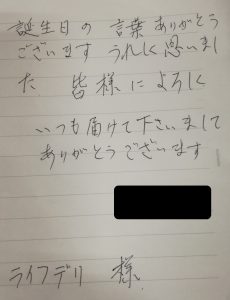 誕生日の 言葉ありがとう
ございます うれしく思いまし
た 皆様によろしく
いつも届けて下さいまして
ありがとうございます
ライフデリ 様